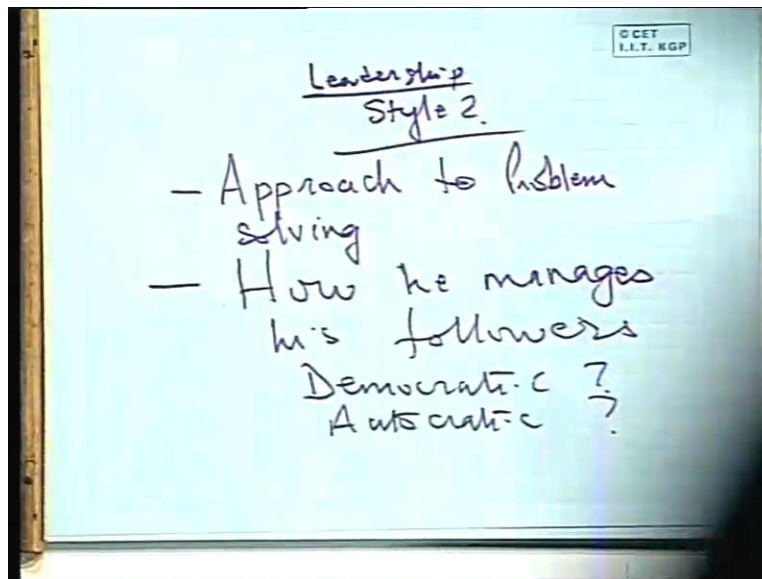 © CET
I.I.T. KGP
Leadership
Style 2.
- Approach to Problem
solving
- How he manages
his followers
Democratic ?
Autocratic ?